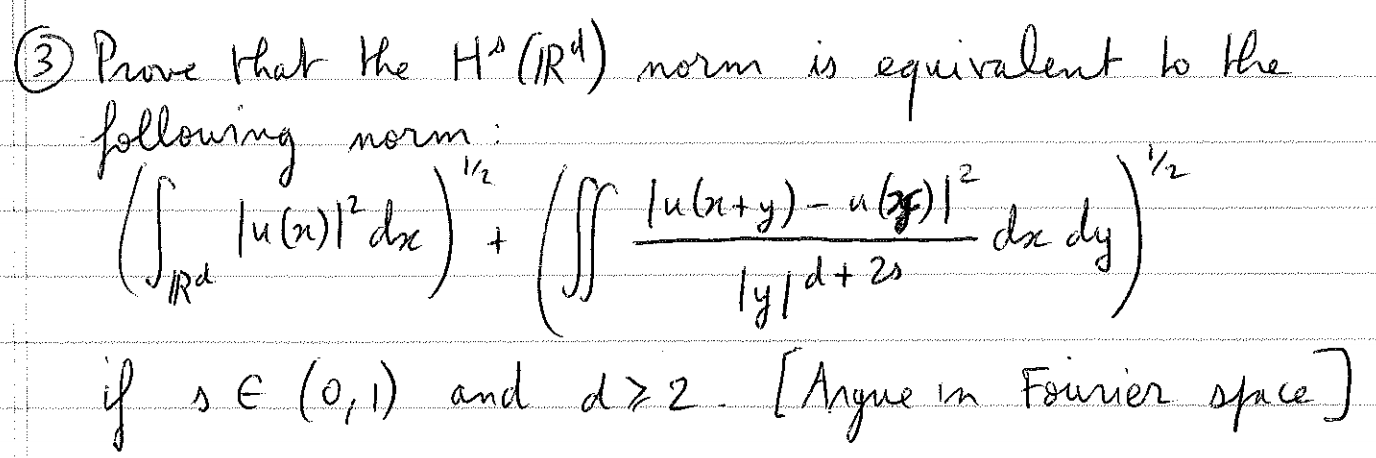 ③ Prove that the H^s(ℝ^d) norm is equivalent to the
following norm:
(∫_{ℝ^d} |u(x)|² dx)^{1/2} + (∬ |u(x+y) - u(x)|² / |y|^{d+2s} dx dy)^{1/2}
if s ∈ (0,1) and d ≥ 2. [Argue in Fourier space]